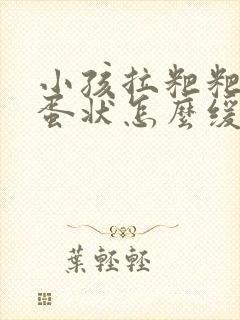 小孩拉粑粑
蛋状怎麽缓
葉輕輕